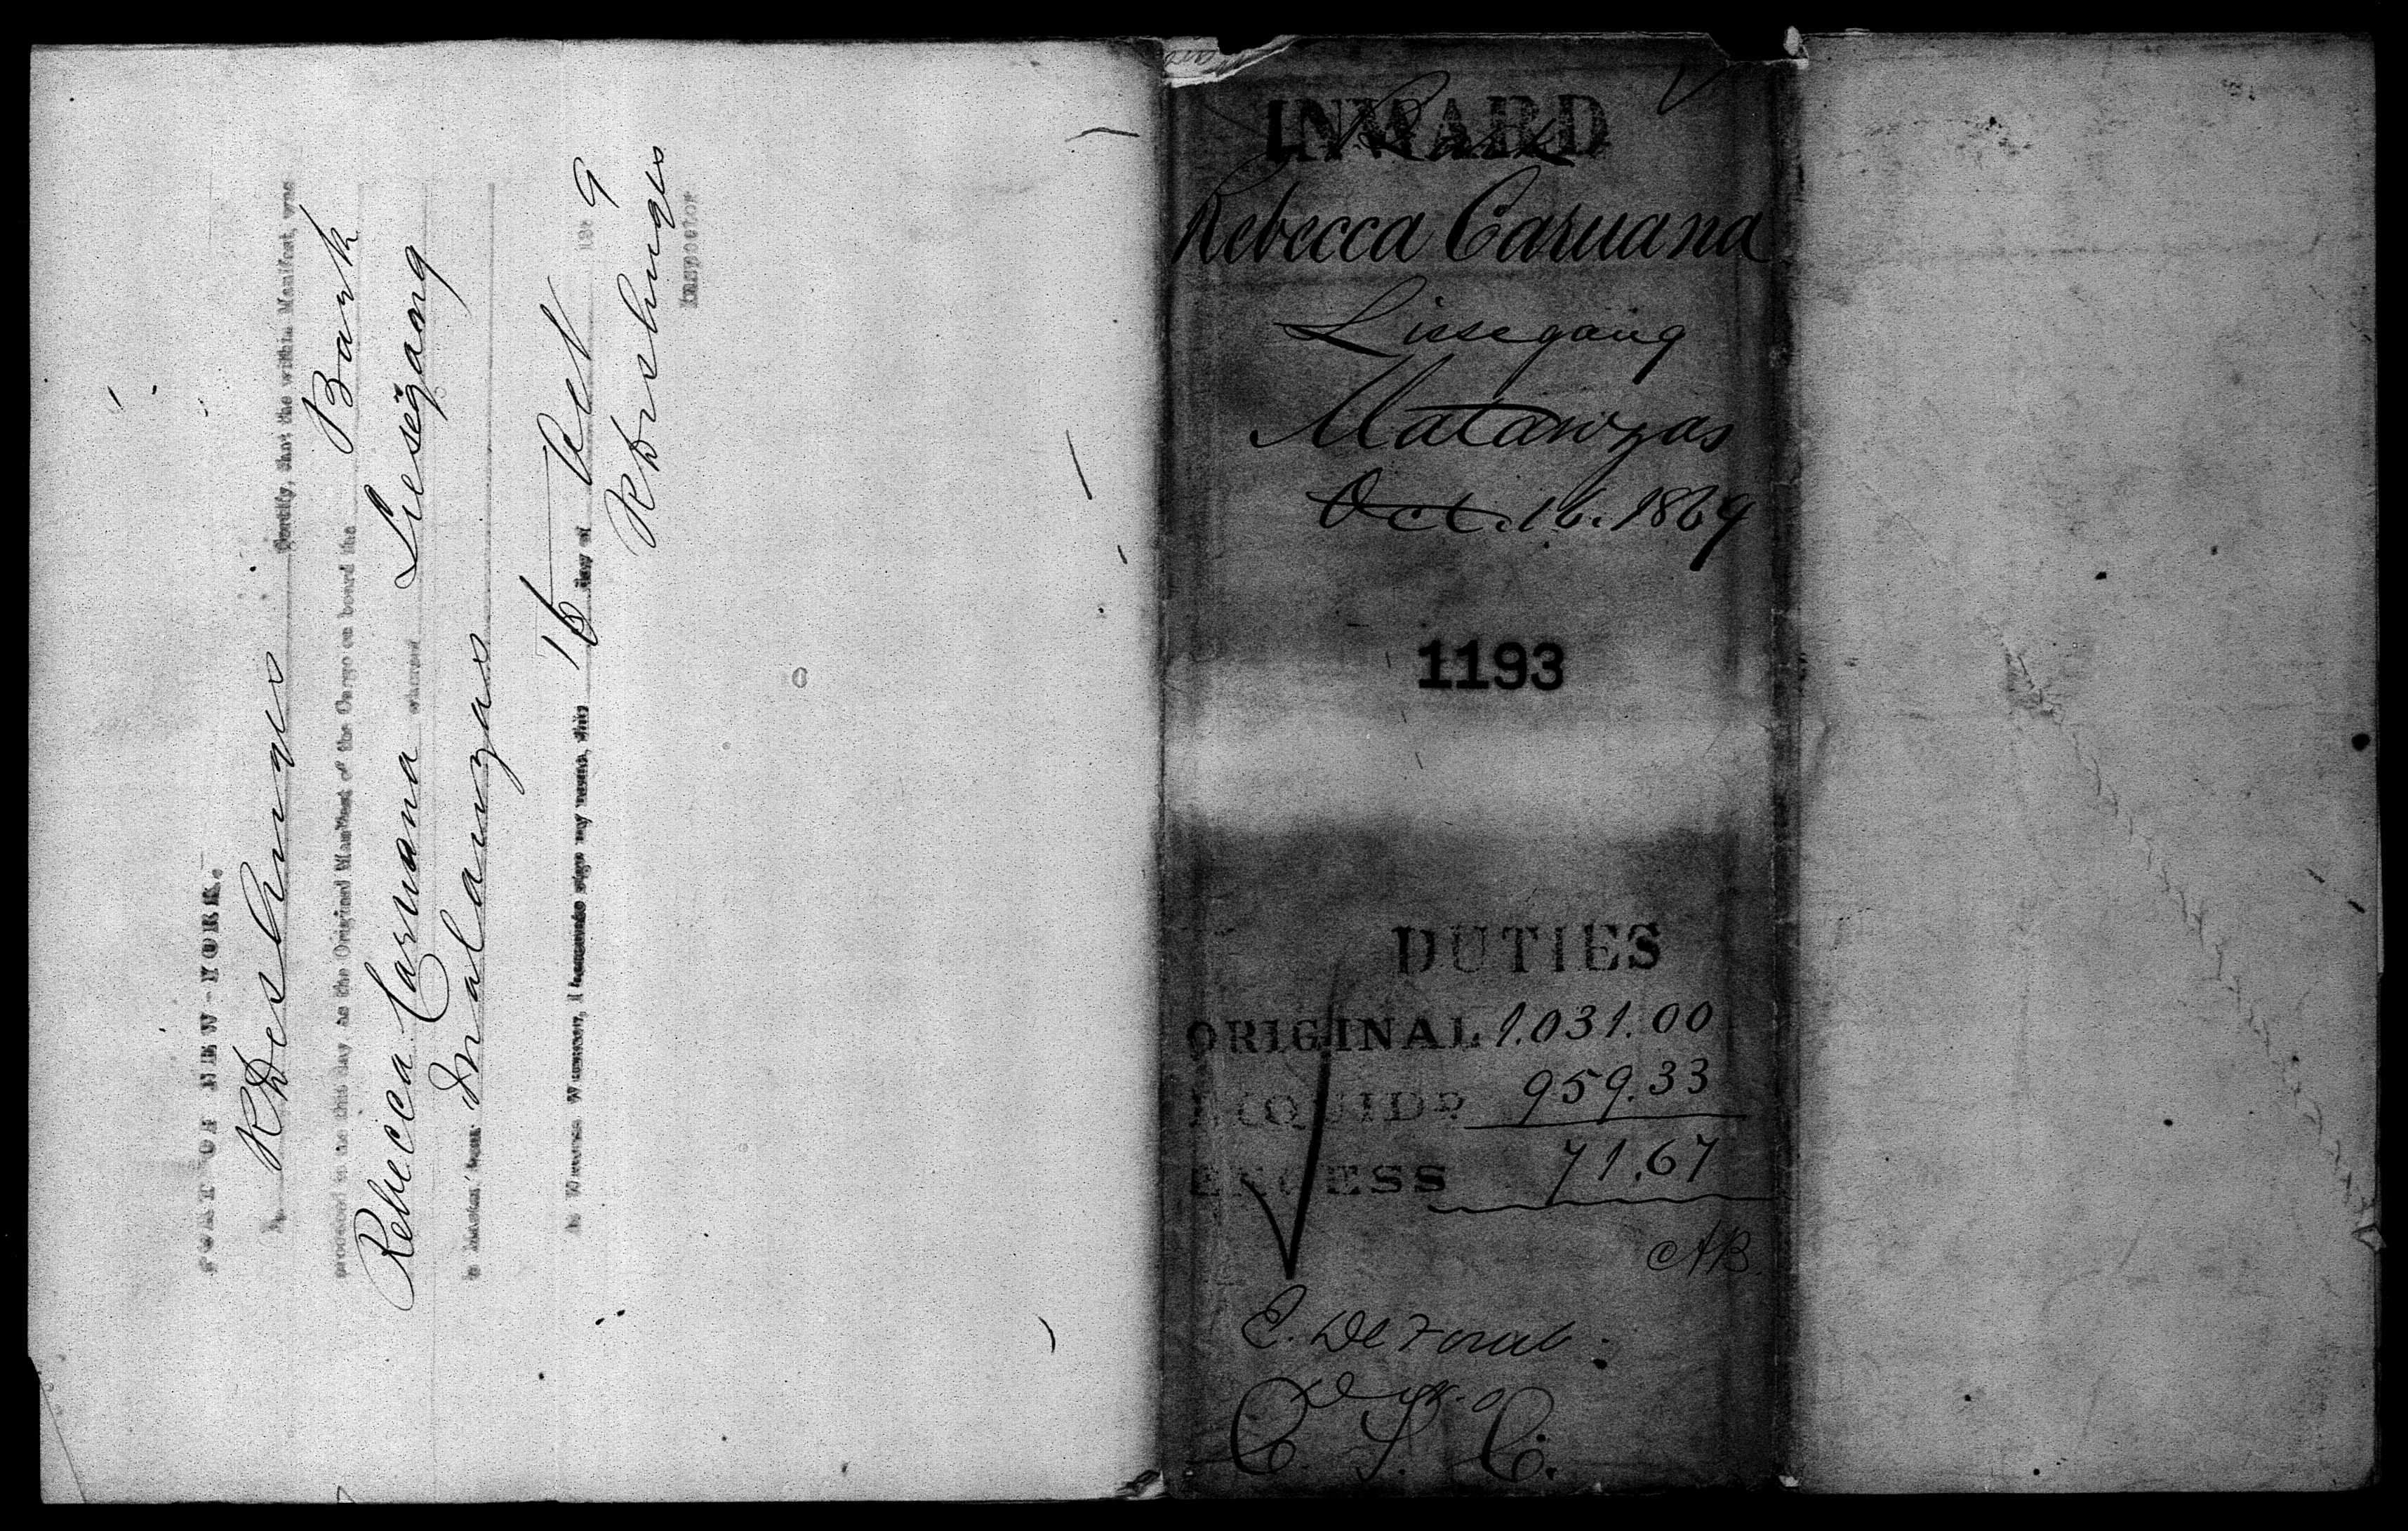 PORT OF NEW-YORK.
I, Certify, that the within Manifest, was
produced to me this day as the Original Manifest of the Cargo on board the Bark
Rebecca Caruana whereof Liesegang
is master, from Matanzas
In Witness Whereof, I hereunto sign my name, this 16 day of Oct 186 9
Inspector
INWARD
Bark
Rebecca Caruana
Liesegang
Matanzas
Oct. 16. 1869
1193
DUTIES
ORIGINAL 1.031.00
LIQUIDD 959.33
EXCESS 71.67
AB.
C. S. C.